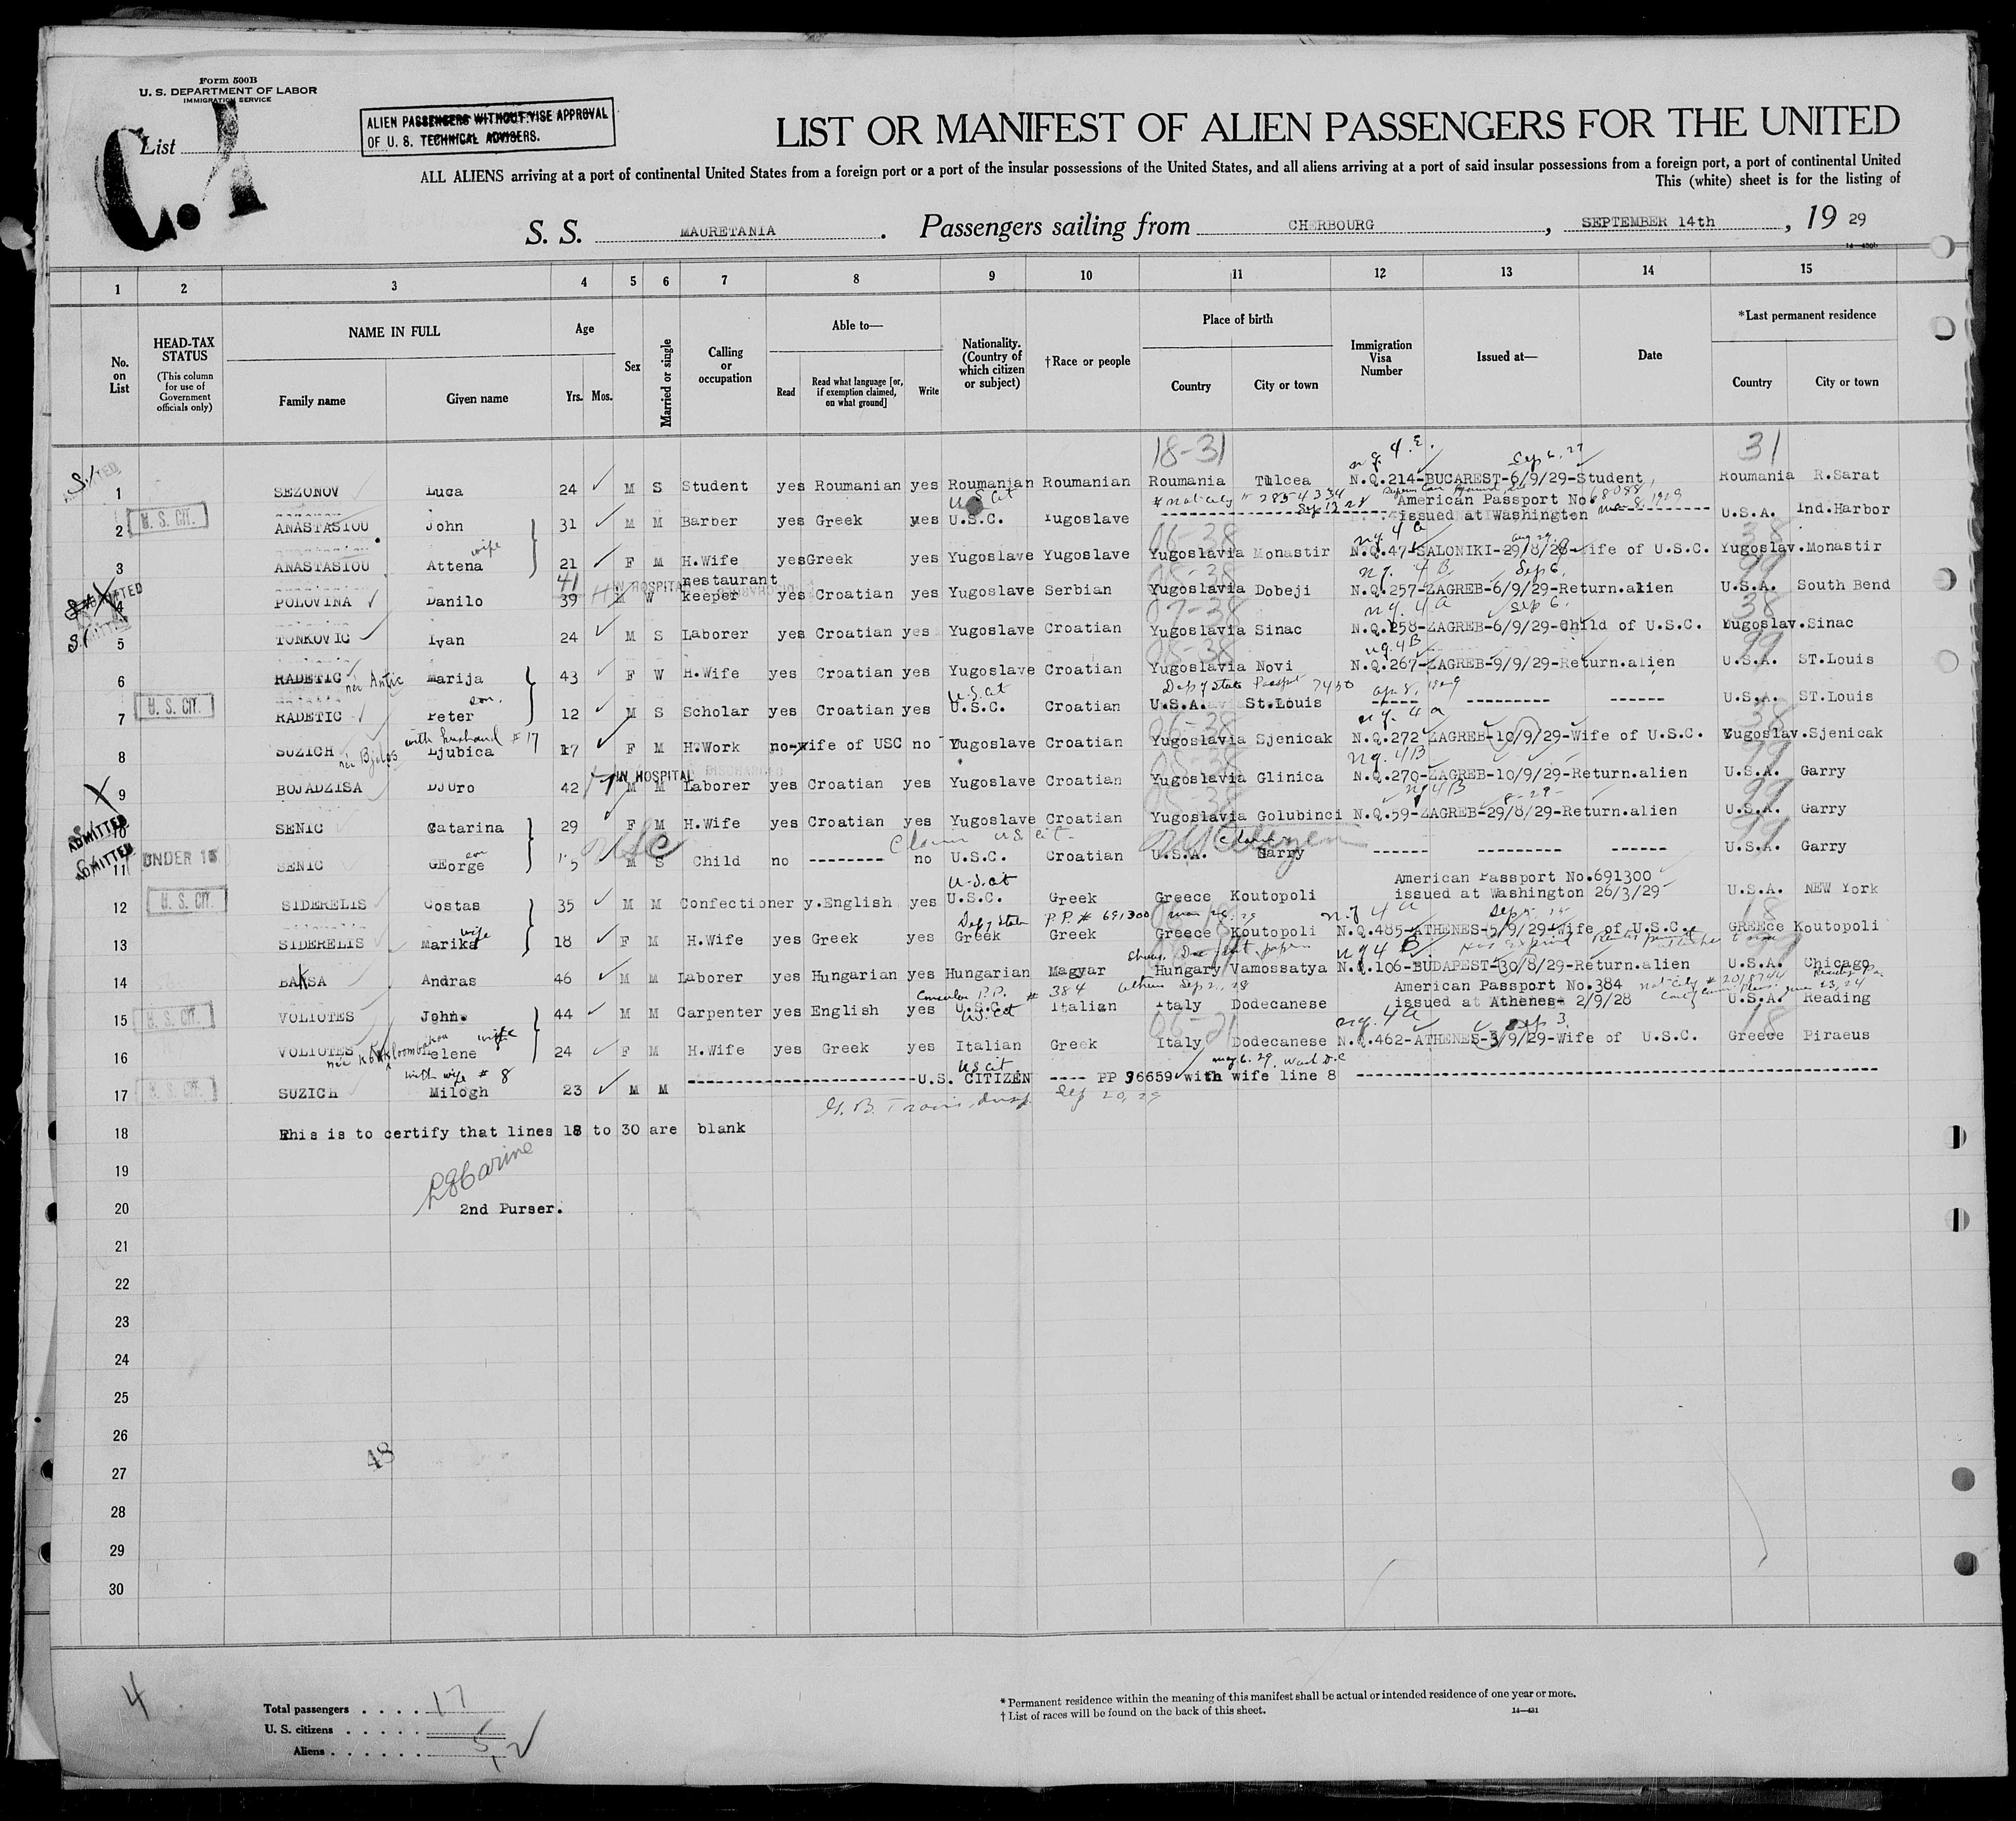 Form 500B
U. S. DEPARTMENT OF LABOR
IMMIGRATION SERVICE
List
ALIEN PASSENGERS WITHOUT VISE APPROVAL
OF U. S. TECHNICAL ADVISERS.
LIST OR MANIFEST OF ALIEN PASSENGERS FOR THE UNITED
ALL ALIENS arriving at a port of continental United States from a foreign port or a port of the insular possessions of the United States, and all aliens arriving at a port of said insular possessions from a foreign port, a port of continental United
This (white) sheet is for the listing of
S. S. MAURETANIA. Passengers sailing from CHERBOURG, SEPTEMBER 14th, 19 29
1 2 3 4 5 6 7 8 9 10 11 12 13 14 15
No. on List
HEAD-TAX STATUS (This column for use of Government officials only)
NAME IN FULL
Family name Given name
Age
Yrs. Mos.
Sex
Married or single
Calling or occupation
Able to—
Read
Read what language [or, if exemption claimed, on what ground]
Write
Nationality. (Country of which citizen or subject)
†Race or people
Place of birth
Country City or town
Immigration Visa Number
Issued at—
Date
*Last permanent residence
Country City or town
18-31 31
1 SEZONOV Luca 24 M S Student yes Roumanian yes Roumanian Roumanian Roumania Tulcea N.Q.214-BUCAREST-6/9/29-Student Roumania R.Sarat
U.S. CIT.
2 ANASTASIOU John 31 M M Barber yes Greek yes U.S.C. Yugoslave American Passport No. 68088 issued at Washington U.S.A. Ind.Harbor
wife
3 ANASTASIOU Attena 21 F M H.Wife yes Greek yes Yugoslave Yugoslave Yugoslavia Monastir N.Q.47-SALONIKI-29/8/28-Wife of U.S.C. Yugoslav.Monastir
41 IN HOSPITAL
4 POLOVINA Danilo 39 M W Restaurant keeper yes Croatian yes Yugoslave Serbian Yugoslavia Dobeji N.Q.257-ZAGREB-6/9/29-Return.alien U.S.A. South Bend
5 TONKOVIC Ivan 24 M S Laborer yes Croatian yes Yugoslave Croatian Yugoslavia Sinac N.Q.258-ZAGREB-6/9/29-Child of U.S.C. Yugoslav.Sinac
6 RADETIC née Antic Marija 43 F W H.Wife yes Croatian yes Yugoslave Croatian Yugoslavia Novi N.Q.267-ZAGREB-9/9/29-Return.alien U.S.A. ST.Louis
U. S. CIT.
son.
7 RADETIC Peter 12 M S Scholar yes Croatian yes U.S.C. Croatian U.S.A. St.Louis U.S.A. ST.Louis
with husband # 17
8 SUZICH Ljubica 17 F M H.Work no-wife of USC no Yugoslave Croatian Yugoslavia Sjenicak N.Q.272 ZAGREB-10/9/29-Wife of U.S.C. Yugoslav.Sjenicak
IN HOSPITAL DISCHARGED
9 BOJADZISA DJUro 42 M M Laborer yes Croatian yes Yugoslave Croatian Yugoslavia Glinica N.Q.270-ZAGREB-10/9/29-Return.alien U.S.A. Garry
ADMITTED
10 SENIC Catarina 29 F M H.Wife yes Croatian yes Yugoslave Croatian Yugoslavia Golubinci N.Q.59-ZAGREB-29/8/29-Return.alien U.S.A. Garry
ADMITTED
UNDER 16
11 SENIC GEorge 5 M S Child no no U.S.C. Croatian U.S.A. Garry U.S.A. Garry
U. S. CIT.
12 SIDERELIS Costas 35 M M Confectioner y.English yes U.S.C. Greek Greece Koutopoli American Passport No.691300 issued at Washington 26/3/29 U.S.A. NEW York
wife
13 SIDERELIS Marika 18 F M H.Wife yes Greek yes Greek Greek Greece Koutopoli N.Q.485-ATHENES-5/9/29-Wife of U.S.C. GREEce Koutopoli
14 BAKSA Andras 46 M M Laborer yes Hungarian yes Hungarian Magyar Hungary Vamossatya N.Q.106-BUDAPEST-30/8/29-Return.alien U.S.A. Chicago
U. S. CIT.
15 VOLIOTES John 44 M M Carpenter yes English yes U.S.C. Italian Italy Dodecanese American Passport No.384 issued at Athenes 2/9/28 U.S.A. Reading
wife
16 VOLIOTES Helene 24 F M H.Wife yes Greek yes Italian Greek Italy Dodecanese N.Q.462-ATHENES-3/9/29-Wife of U.S.C. Greece Piraeus
with wife # 8
U. S. CIT.
17 SUZICH Milogh 23 M M U.S. CITIZEN PP 36659 with wife line 8
Sep 20, 29
18 This is to certify that lines 18 to 30 are blank
19
20 2nd Purser.
21
22
23
24
25
26
48
27
28
29
30
4
Total passengers . . . . 17
U. S. citizens . . . . . 5
Aliens . . . . . . 12
* Permanent residence within the meaning of this manifest shall be actual or intended residence of one year or more.
† List of races will be found on the back of this sheet.
14—431